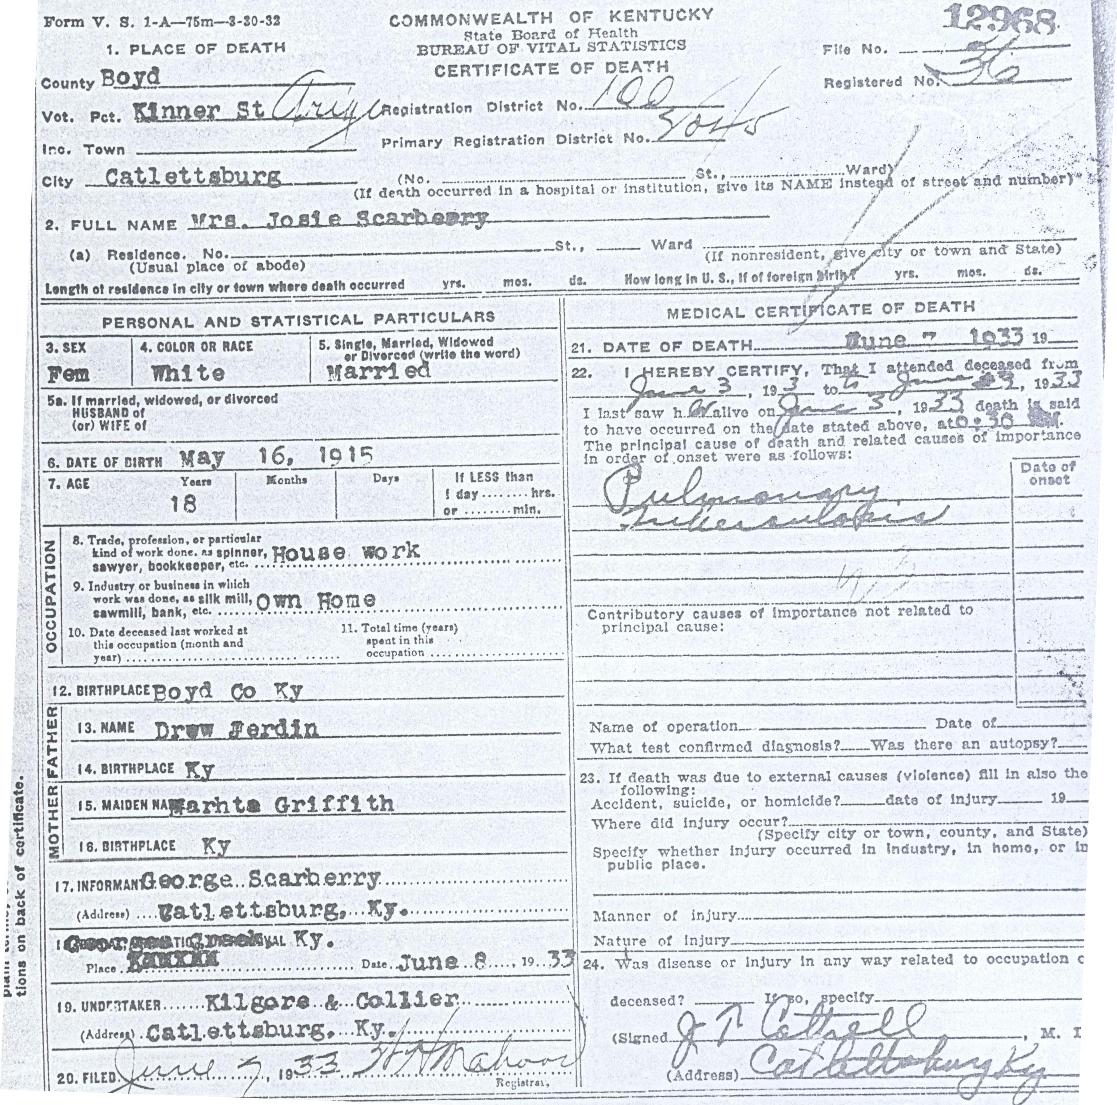 Form V. S. 1-A—75m—3-30-32
COMMONWEALTH OF KENTUCKY
State Board of Health
BUREAU OF VITAL STATISTICS
CERTIFICATE OF DEATH
12968
File No.
Registered No. 36
1. PLACE OF DEATH
County Boyd
Vot. Pct. Kinner St
Registration District No. 100
Inc. Town
Primary Registration District No. 5045
City Catlettsburg (No. St., Ward)
(If death occurred in a hospital or institution, give its NAME instead of street and number)
2. FULL NAME Mrs. Josie Scarberry
(a) Residence. No. St., Ward
(Usual place of abode) (If nonresident, give city or town and State)
Length of residence in city or town where death occurred yrs. mos. ds. How long in U. S., if of foreign birth? yrs. mos. ds.
PERSONAL AND STATISTICAL PARTICULARS
3. SEX
Fem
4. COLOR OR RACE
White
5. Single, Married, Widowed
or Divorced (write the word)
Married
5a. If married, widowed, or divorced
HUSBAND of
(or) WIFE of
6. DATE OF BIRTH May 16, 1915
7. AGE Years Months Days If LESS than
18 1 day ........ hrs.
or ........ min.
OCCUPATION
8. Trade, profession, or particular
kind of work done, as spinner, House work
sawyer, bookkeeper, etc.
9. Industry or business in which
work was done, as silk mill, Own Home
sawmill, bank, etc.
10. Date deceased last worked at
this occupation (month and
year)
11. Total time (years)
spent in this
occupation
12. BIRTHPLACE Boyd Co Ky
FATHER
13. NAME Drew Ferdin
14. BIRTHPLACE Ky
MOTHER
15. MAIDEN NAM Marhta Griffith
16. BIRTHPLACE Ky
17. INFORMAN George Scarberry
(Address) Catlettsburg, Ky.
Georges Creek Ky.
Place Date June 8, 1933
19. UNDERTAKER Kilgore & Collier
(Address) Catlettsburg, Ky.
20. FILED June 7, 1933
Registrar,
MEDICAL CERTIFICATE OF DEATH
21. DATE OF DEATH June 7 1933 19
22. I HEREBY CERTIFY, That I attended deceased from
June 3, 193 to June, 1933
I last saw her alive on June 3, 1933 death is said
to have occurred on the date stated above, at
The principal cause of death and related causes of importance
in order of onset were as follows:
Date of
onset
Pulmonary
Tuberculosis
Contributory causes of importance not related to
principal cause:
Name of operation Date of
What test confirmed diagnosis? Was there an autopsy?
23. If death was due to external causes (violence) fill in also the
following:
Accident, suicide, or homicide? date of injury 19
Where did injury occur?
(Specify city or town, county, and State)
Specify whether injury occurred in industry, in home, or in
public place.
Manner of injury
Nature of injury
24. Was disease or injury in any way related to occupation o
deceased? If so, specify
(Signed J T Cottrell, M. D
(Address) Catlettsburg Ky
tions on back of certificate.